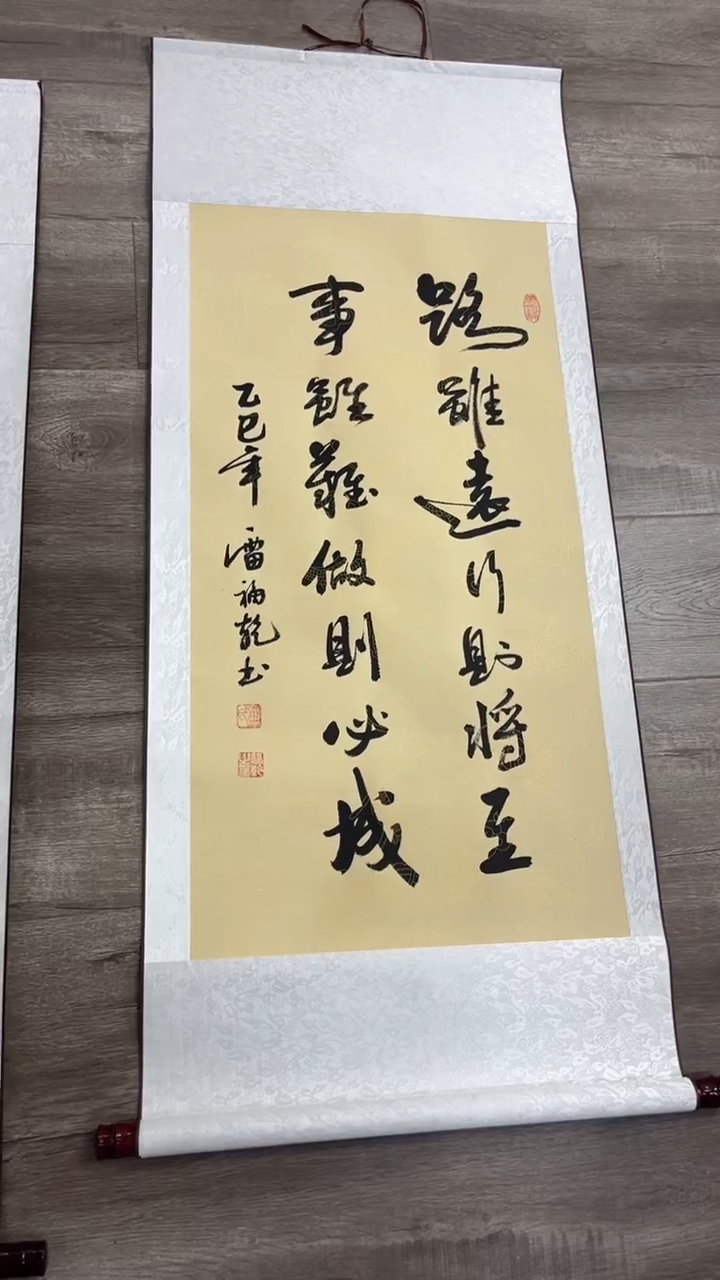 路雖遠行則将至
事雖難做則必城
乙巳年 雷福乾书